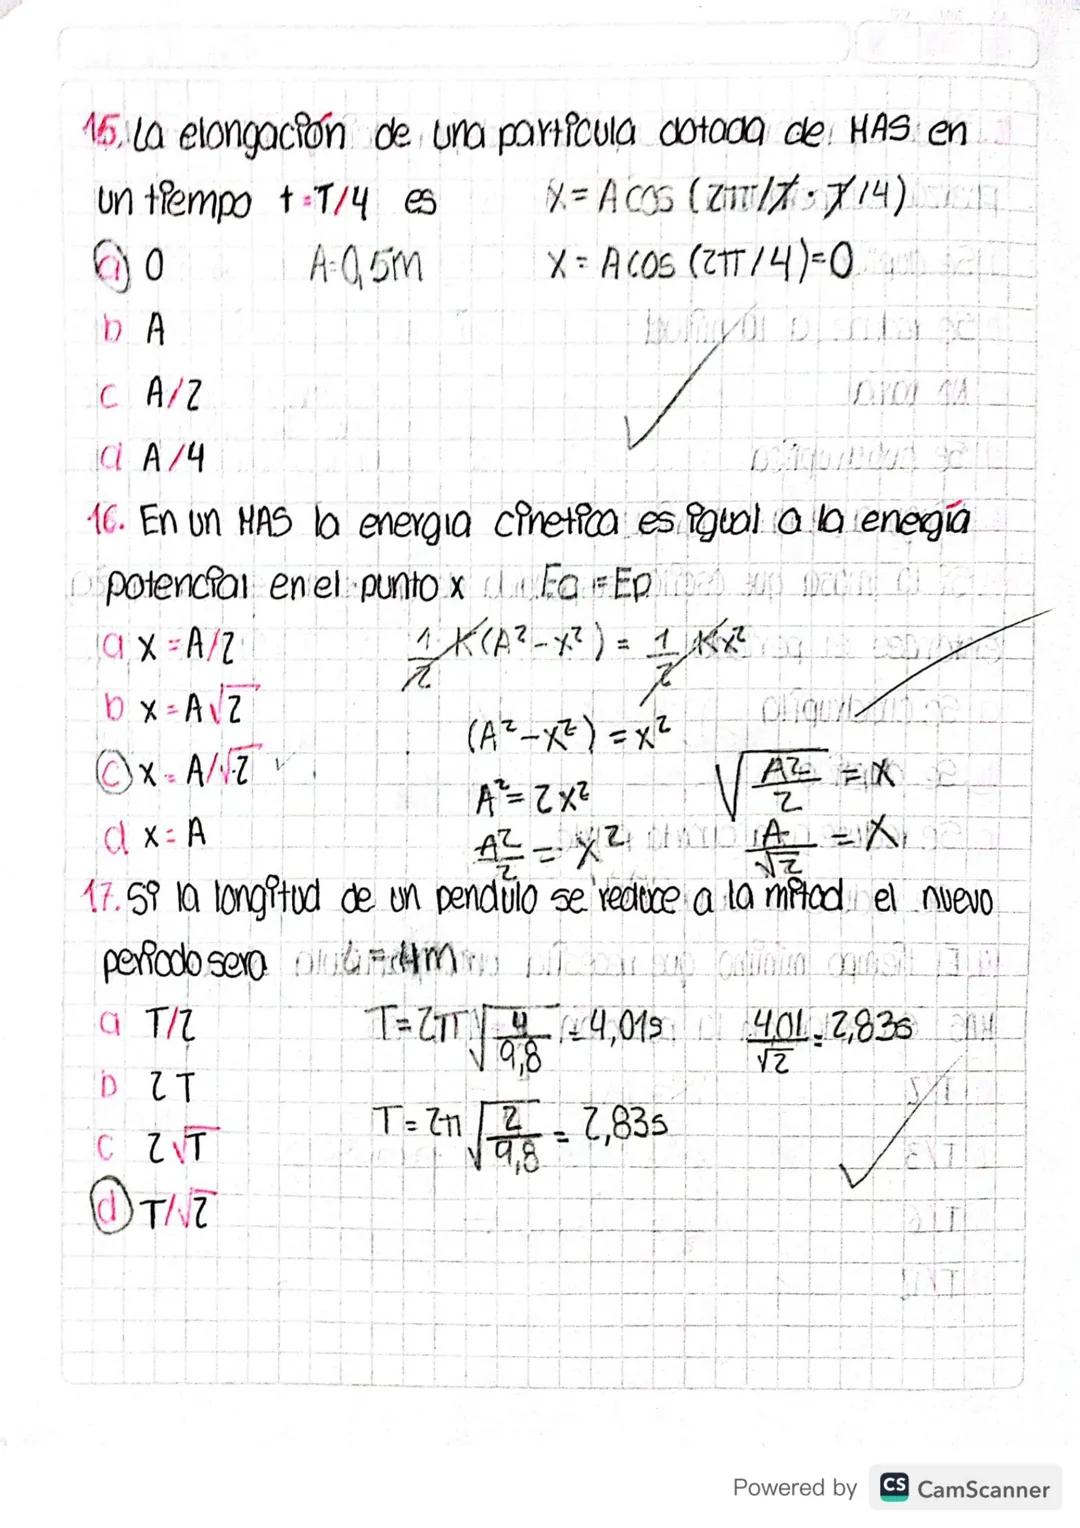 15. La elongación de una particula dotada de HAS en
un tiempo t=T/4 es
x = A cos (2π/T · T/4)
a) 0
A=0,5m
x = A cos (2π/4)=0
b A
c A/2
d A/4
16. En un HAS la energia cinetica es igual a la energía
potencial en el punto x
Ec = Ep
a x = A/2
1/2 K(A²-x²) = 1/2 Kx²
b x = A√2
(A²-x²) = x²
c x = A/√2
A² = 2x²
√A²/2 = x
d x = A
A²/2 = x²
A/√2 = x
17. Si la longitud de un pendulo se reduce a la mitad el nuevo
periodo sera
L = 4m
a T/2
T = 2π √4/9,8 = 4,01s
4,01/√2 = 2,83s
b 2T
T = 2π √2/9,8 = 2,83s
c 2√T
d T/√2
Powered by CS CamScanner